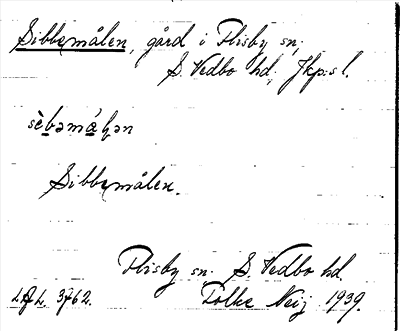 Sibbemålen, gård i Flisby sn,
S. Vedbo hd, Jkp:s l.
sèbəmáɫən
Sibbemålen.
Flisby sn. S. Vedbo hd.
LAL. 3762. Folke Neij 1939.